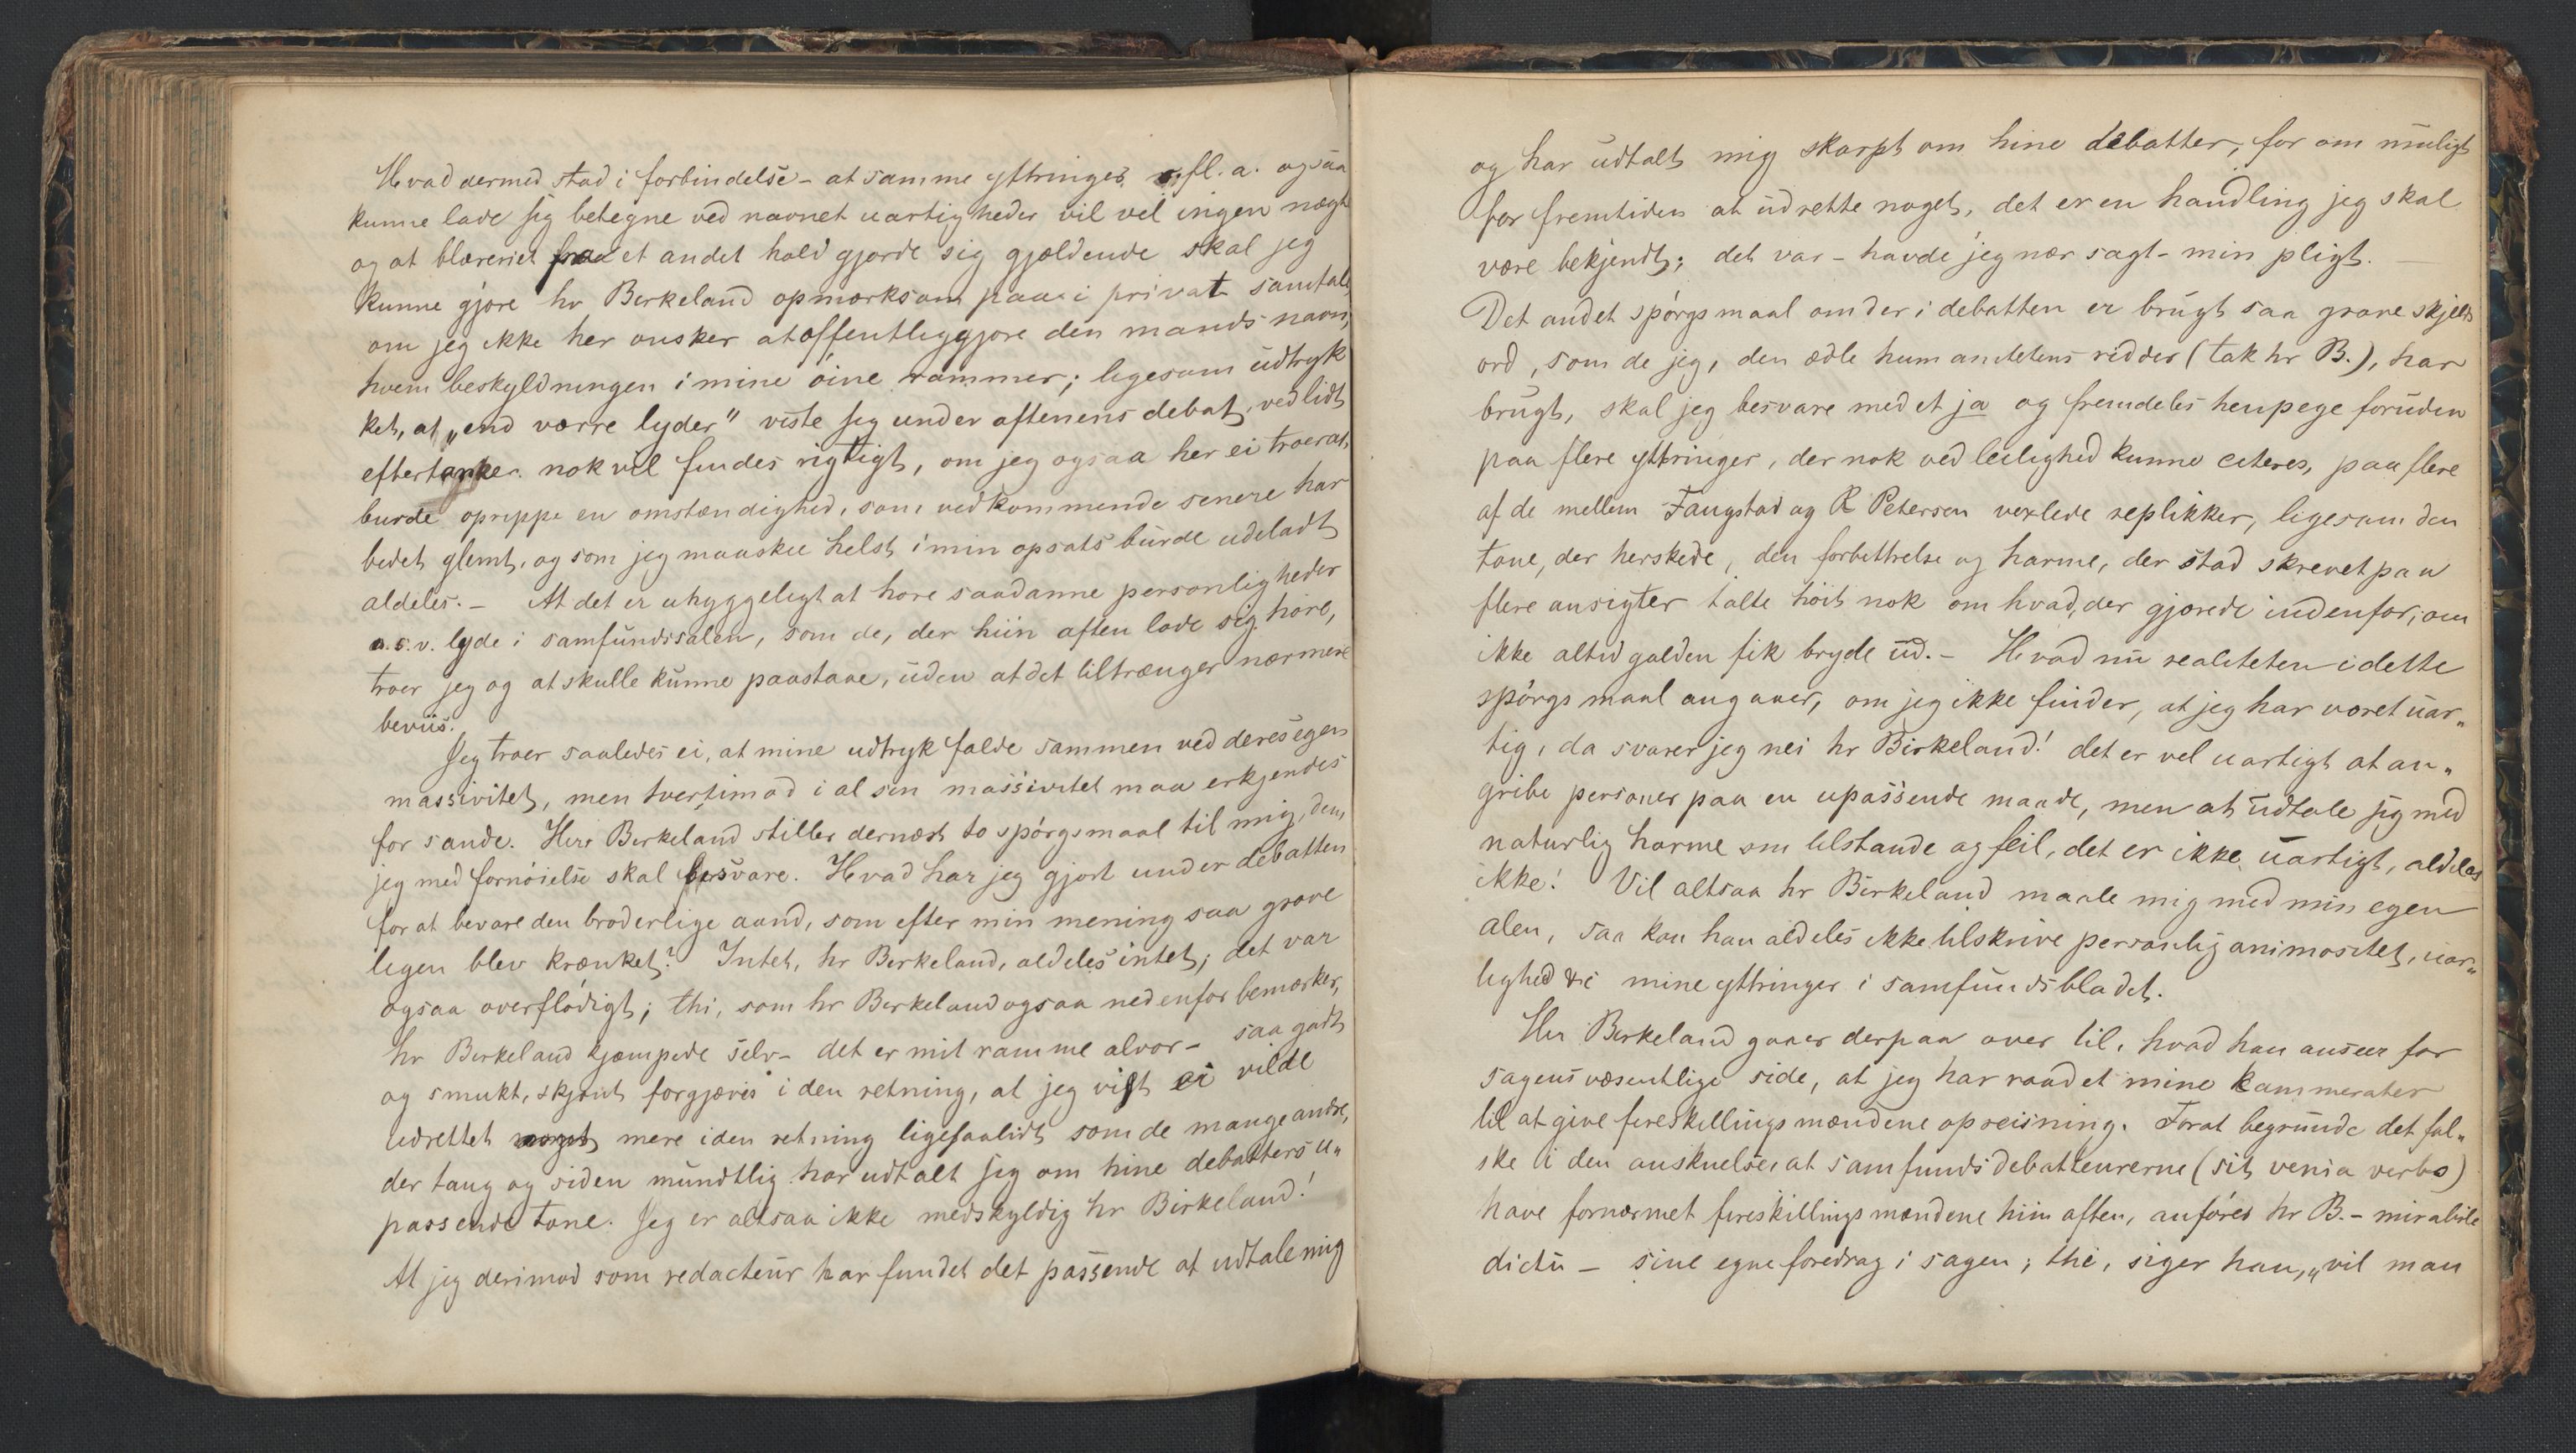 Hvad dermed stod i forbindelse - at samme yttringer fl. a. ogsaa
kunne lade sig betegne ved navnet uartigheder vil vel ingen nægte
og at blæreriet fra et andet hold gjorde sig gjældende skal jeg
kunne gjøre hr Birkeland opmærksom paa i privat samtale,
om jeg ikke her ønsker at offentliggjøre den mands navn,
hvem beskyldningen i mine öine rammer; ligesom udtryk
ket, at „end værre lyder" viste sig under aftenens debat, ved lidt
eftertanke nok vil findes rigtigt, om jeg ogsaa her ei troer at
burde oprippe en omstændighed, som vedkommende senere har
bedet glemt, og som jeg maaskee helst i min opsats burde udeladt
aldeles. - At det er uhyggeligt at høre saadanne personligheder
o.s.v. lyde i samfundssalen, som de, der hiin aften lode sig höre,
troer jeg og at skulle kunne paastaae, uden at det tiltrænger nærmere
beviis.
Jeg troer saaledes ei, at mine udtryk falde sammen ved deres egen
massivitet, men tvertimod i al sin massivitet maa erkjendes
for sande. Herr Birkeland stiller dernæst to spörgsmaal til mig, dem
jeg med fornöielse skal besvare. Hvad har jeg gjort under debatten
for at bevare den broderlige aand, som efter min mening saa grove
ligen blev krænket? Intet, hr Birkeland, aldeles intet; det var
ogsaa overflödigt; thi, som hr Birkeland ogsaa nedenfor bemærker,
hr Birkeland kjæmpede selv - det er mit ramme alvor - saa godt
og smukt, skjönt forgjæves i den retning, at jeg vist ei vilde
udrettet mere i den retning ligesaalidt som de mange andre,
der taug og siden mundtlig har udtalt sig om hine debatters u„
passende tone. Jeg er altsaa ikke medskyldig hr Birkeland!
At jeg derimod som redacteur har fundet det passende at udtale mig
og har udtalt mig skarpt om hine debatter, for om muligt
for fremtiden at udrette noget, det er en handling jeg skal
være bekjendt; det var - havde jeg nær sagt - min pligt.
Det andet spörgsmaal om der i debatten er brugt saa grove skjelds
ord, som de jeg, den ædle humanitetens ridder (tak hr B.), har
brugt, skal jeg besvare med et ja og fremdeles henpege foruden
paa flere yttringer, der nok ved leilighed kunne citeres, paa flere
af de mellem Faugstad og R Petersen vexlede replikker, ligesom den
tone, der herskede, den forbittrelse og harme, der stod skrevet paa
flere ansigter talte höit nok om hvad, der gjærede indenfor, om
ikke altid galden fik bryde ud. - Hvad nu realiteten i dette
spörgsmaal angaaer, om jeg ikke finder, at jeg har været uar„
tig, da svarer jeg nei hr Birkeland! det er vel uartigt at an„
gribe personer paa en upassende maade, men at udtale sig med
naturlig harme om tilstande og feil, det er ikke uartigt, aldeles
ikke! Vil altsaa hr Birkeland maale mig med min egen
alen, saa kan han aldeles ikke tilskrive personlig animositet, uar„
lighed &c mine yttringer i samfundsbladet.
Hr Birkeland gaaer derpaa over til, hvad han anseer for
sagens væsentlige side, at jeg har raadet mine kammerater
til at give fireskillingsmændene opreisning. For at begrunde det fal„
ske i den anskuelse, at samfundsdebatteurerne (sit venia verbo)
have fornærmet fireskillingsmændene hiin aften, anförer hr B. - mirabile
dictu - sine egne foredrag i sagen; thi, siger han, „vil man